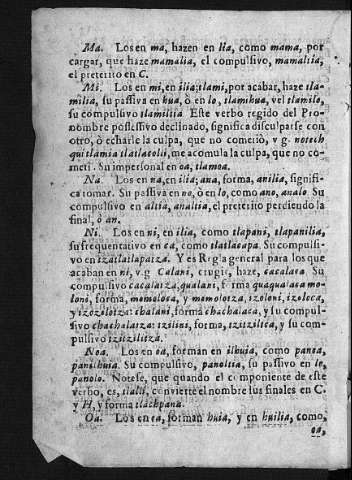 Ma. Los en ma, hazen en lia, como mama, por
cargar, que haze mamalia, el compulsivo, mamaltia,
el preterito en C.
Mi. Los en mi, en ilia; tlami, por acabar, haze tla-
milia, su passiva en hua, ò en lo, tlamihua, vel tlamilo,
su compulsivo tlamiltia Este verbo regido del Pro-
nombre possessivo declinado, significa disculparse con
otro, ò echarle la culpa, que no cometiò, v g. notech
quitlamia tlatlacolli, me acomula la culpa, que no co-
meti. Su impersonal en oa, tlamoa.
Na. Los en na, en ilia, ana, forma, anilia, signifi-
ca tomar. Su passiva en no, ò en lo, como ano, analo. Su
compulsivo en altia, analtia, el preterito perdiendo la
final, ò an.
Ni. Los en ni, en ilia, como tlapani, tlapanilia,
su frequentativo en ca, como tlatlacapa. Su compulsi-
vo en tzatlatlapatza. Y es Regla general para los que
acaban en ni, v.g. Calani, crugir, haze, cacalaca. Su
compulsivo cacalatza, qualani, forma quaqualaca mo-
loni, forma, momoloca, y momolotza, izoloni, izoloca,
y izozolotza: chalani, forma chachalaca, y su compul-
sivo chachalatza: tzilini, forma, tzitzilica, y su com-
pulsivo tzitzilitza.
Noa. Los en oa, forman en ilhuia, como panoa,
panilhuia. Su compulsivo, panoltia, su passivo en lo,
panolo. Notese, que quando el componiente de este
verbo, es, tlalli, convierte el nombre sus finales en C,
y H, y forma tlachpano.
Oa. Los en oa, forman huia, y en huilia, como,
oa,